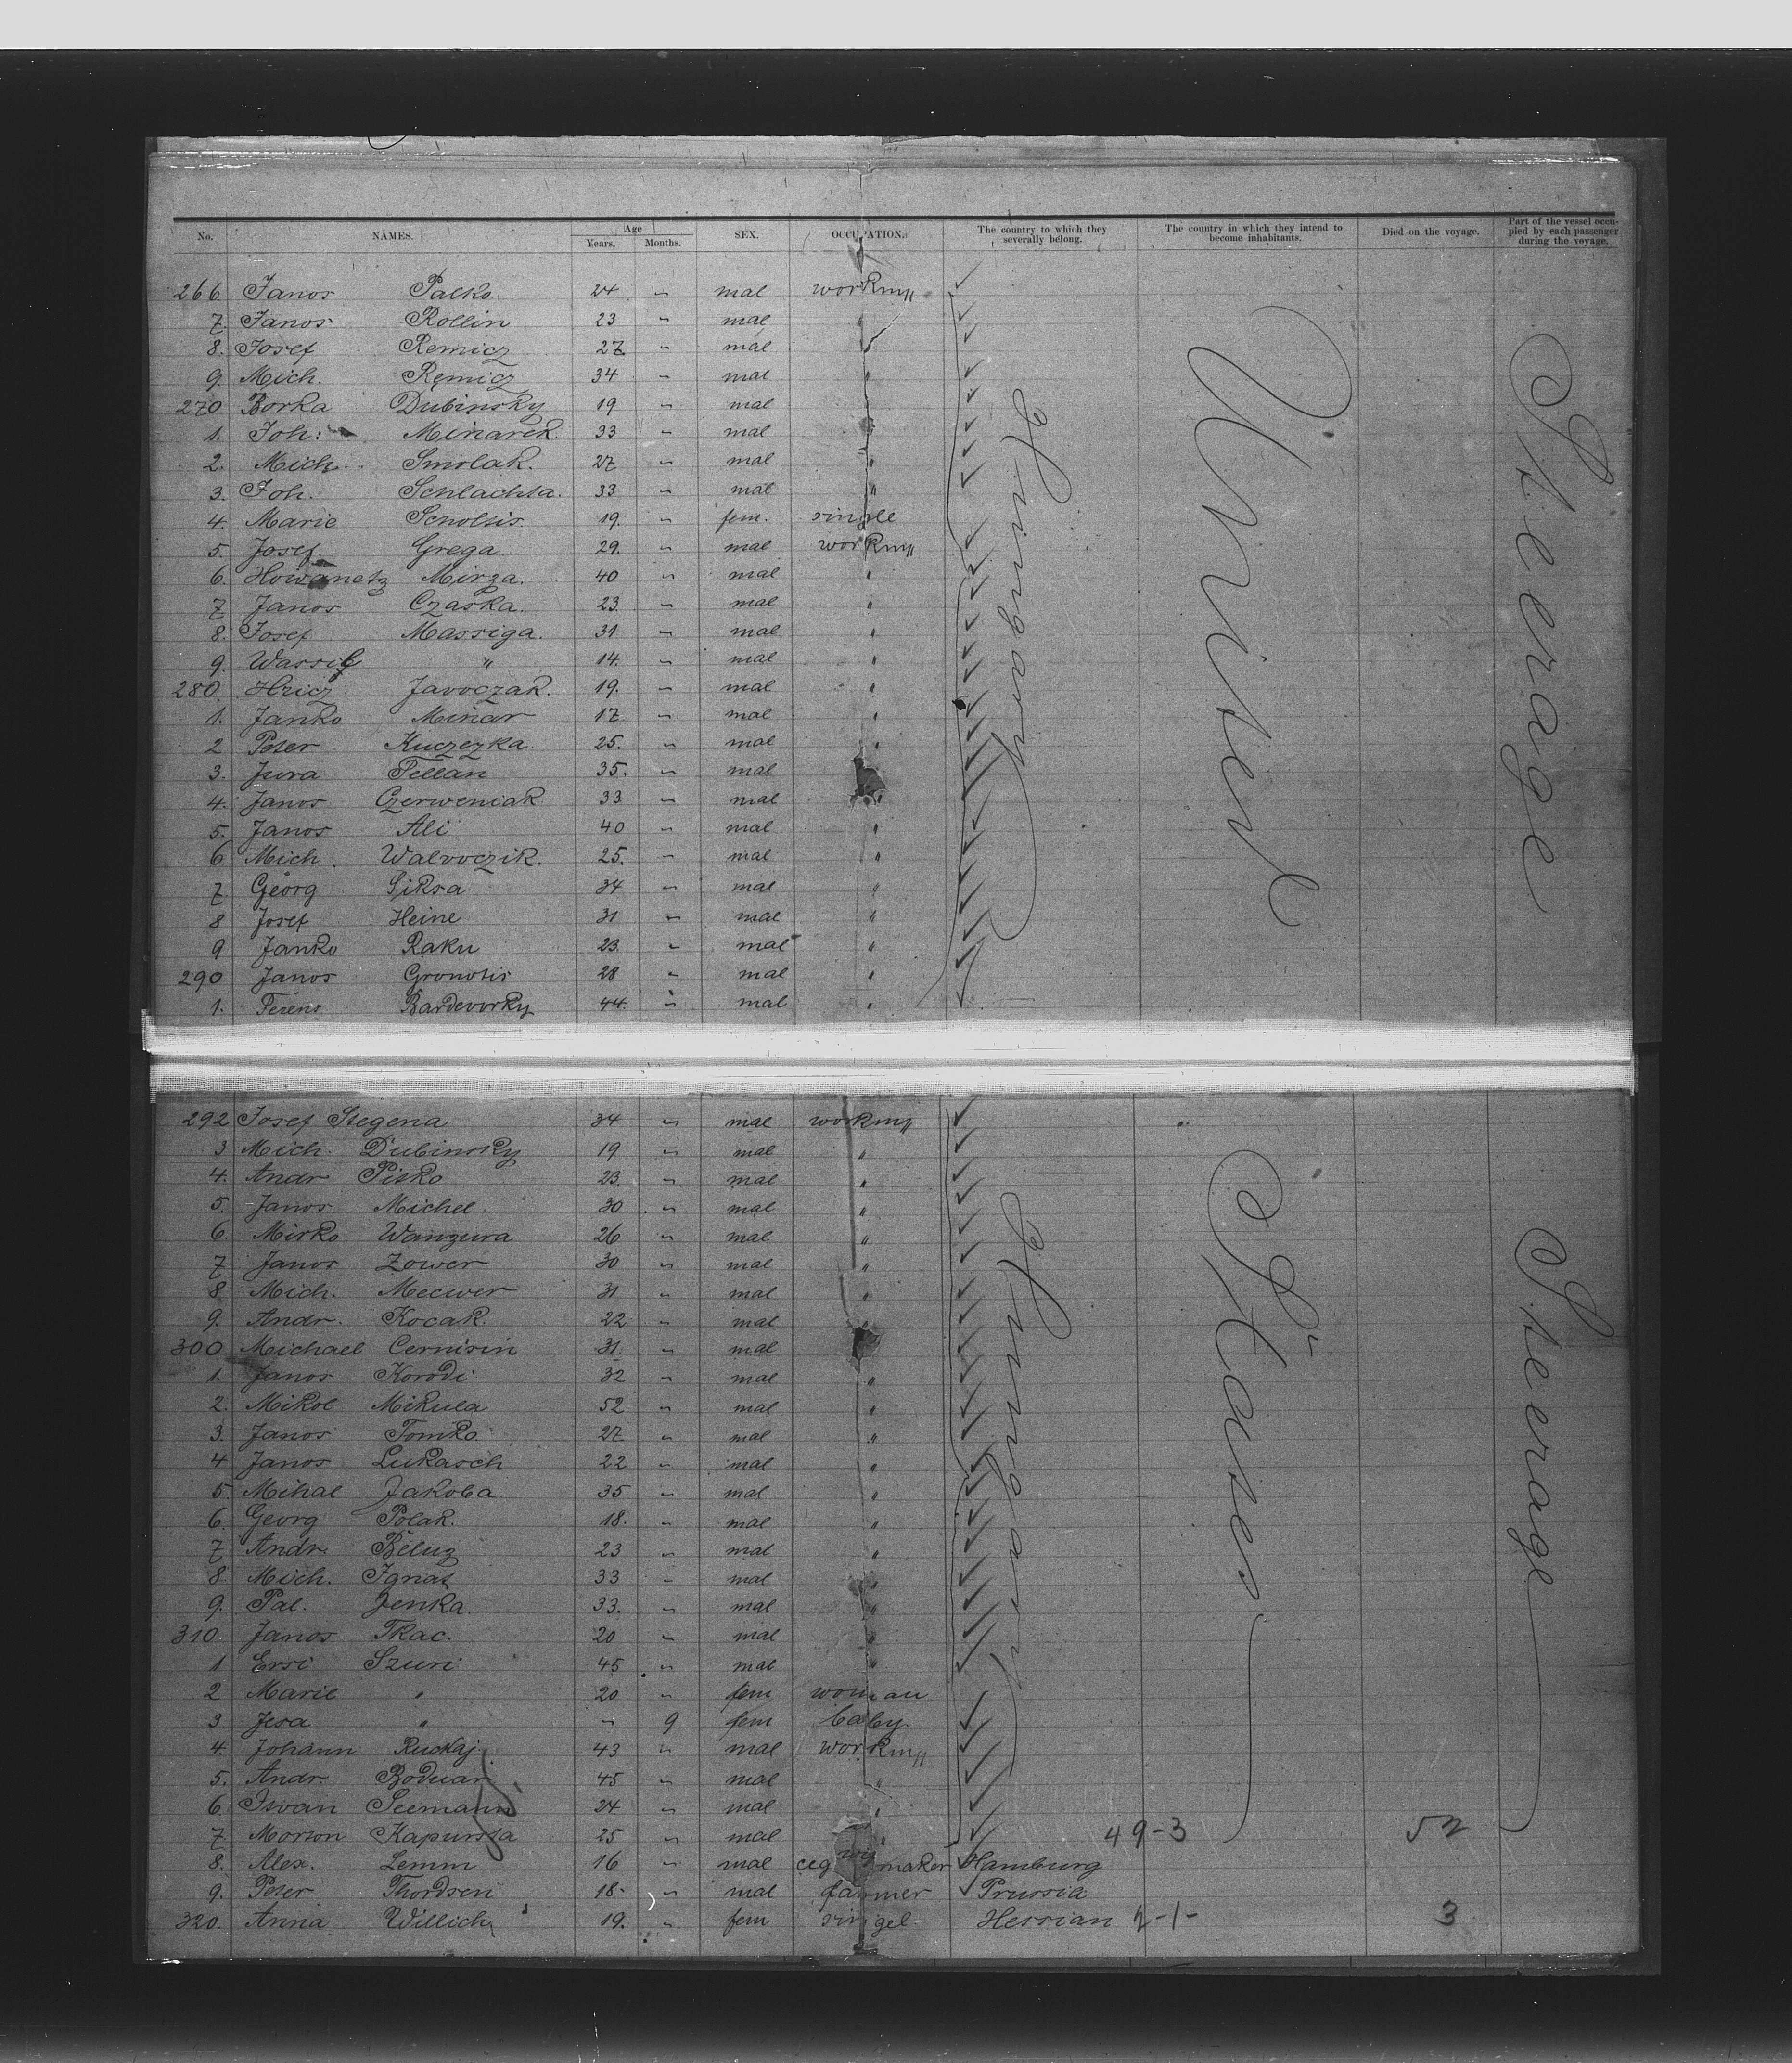 No. NAMES. Age Years. Months. SEX. OCCUPATION. The country to which they severally belong. The country in which they intend to become inhabitants. Died on the voyage. Part of the vessel occupied by each passenger during the voyage.
266 Janos Palko. 24 " mal workm"
7. Janos Rollin 23 " mal "
8. Josef Remicz 27 " mal "
9. Mich. Remicz 34 " mal "
270 Borka Dubinsky 19 " mal "
1. Joh: Minarek. 33 " mal "
2. Mich. Smolak. 27 " mal "
3. Joh. Schlachta. 33 " mal "
4. Marie 19. " fem. single
5. Josef Grega 29. " mal workm"
6. Howanetz Mirza. 40 " mal "
7 Janos Czaska. 23. " mal "
8. Josef Massiga. 31 " mal "
9. Wassil " 14. " mal "
280. Hricz Javoczak. 19. " mal "
1. Janko Minar 17 " mal "
2 Peter Kuczezka 25. " mal "
3. Jura Fellan 35. " mal
4. Janos Czerweniak 33 " mal "
5. Janos Ali 40 " mal "
6 Mich. Walvoczik. 25. " mal "
7. Georg Siksa 34 " mal "
8 Josef Heine 31 " mal "
9 Janko Raku 23 " mal "
290 Janos Gronotis 28 " mal "
1. Ferens Bardevorky 44. " mal "
Hungary
United
Steerage
292 Josef Stegena 34 " mal workm"
3 Mich. Dubinsky 19 " mal "
4. Andr Pisko 23. " mal "
5. Janos Michel. 30 " mal "
6. Mirko Wanzura 26 " mal "
7 Janos Zower 30 " mal "
8 Mich. Mecwer 31 " mal "
9. Andr. Kocak. 22 " mal
300 Michael Cernisin 31. " mal
1. Janos Korodi 32 " mal "
2. Mikol Mikula 52 " mal "
3. Janos Tomko 27 " mal "
4 Janos Lukasch 22 " mal "
5. Mihal Jakoba 35 " mal "
6. Georg Polak. 18. " mal "
7 Andr. Beluz 23 " mal "
8 Mich. Ignat 33 " mal "
9. Pal. Jenka. 33. " mal "
310 Janos Tkac. 20 " mal "
1 Ersi Szuri 45 " mal "
2 Marie " 20 " fem woman
3 Jesa " " 9 fem baby
4. Johann Ruckaj 43 " mal workm"
5. Andr. Boduar 45 " mal "
6. Istvan Seemann 24 " mal "
7. Morton Kapursta 25 " mal " 49-3 52
8. Alex. Lemm 16 " mal maker Hamburg
9. Peter Thordsen 18. " mal farmer Prussia
320. Anna Willich 19. " fem singel Hessian 2-1- 3
Hungary
States
Steerage